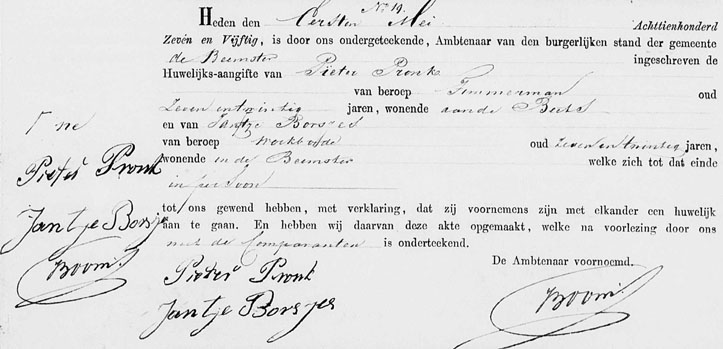 No 19.
Heden den Eersten Mei Achttienhonderd
Zeven en Vijftig, is door ons ondergeteekende, Ambtenaar van den burgerlijken stand der gemeente
de Beemster ingeschreven de
Huwelijks-aangifte van Pieter Pronk
van beroep Timmerman oud
Zeven entwintig jaren, wonende aande Beets
en van Jantje Borsjes
van beroep oud Zeven en twintig jaren,
wonende in de Beemster welke zich tot dat einde
in persoon
tot ons gewend hebben, met verklaring, dat zij voornemens zijn met elkander een huwelijk
aan te gaan. En hebben wij daarvan deze akte opgemaakt, welke na voorlezing door ons
met de Comparanten is onderteekend.
De Ambtenaar voornoemd.
Pieter Pronk
Jantje Borsjes
Boom
Pieter Pronk
Jantje Borsjes
Boom